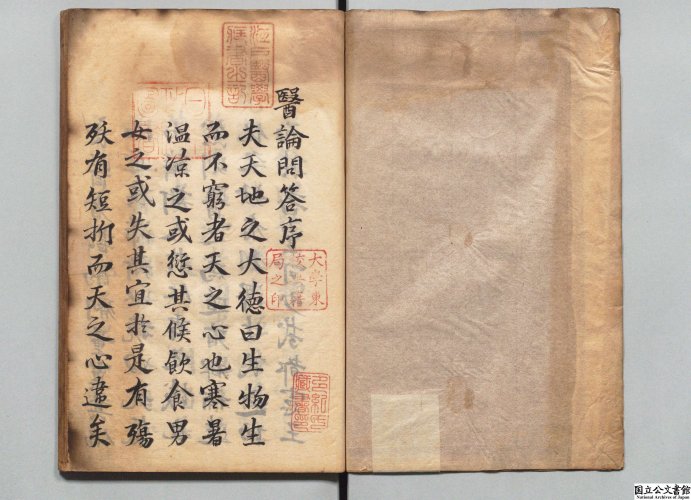 醫論問答序
夫天地之大德曰生物生
而不窮者天之心也寒暑
温凉之或愆其候飲食男
女之或失其宜於是有殤
殀有短折而天之心違矣
大學東
校典籍
局之印
国立公文書館
National Archives of Japan